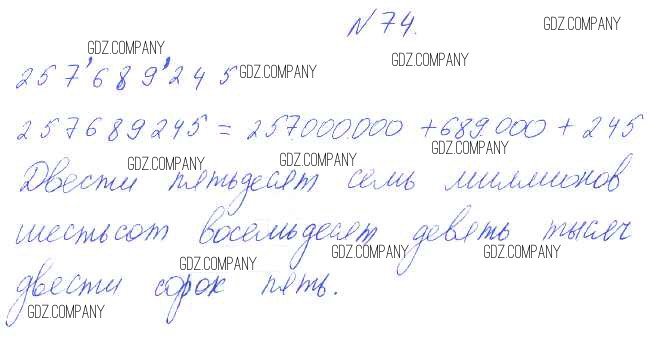 N 74.
GDZ.COMPANY
GDZ.COMPANY
257'689'245 GDZ.COMPANY
GDZ.COMPANY
257689245 = 257000000 + 689000 + 245
GDZ.COMPANY GDZ.COMPANY GDZ.COMPANY
Двести пятьдесят семь миллионов
шестьсот восемьдесят девять тысяч
GDZ.COMPANY GDZ.COMPANY GDZ.COMPANY
двести сорок пять.
GDZ.COMPANY